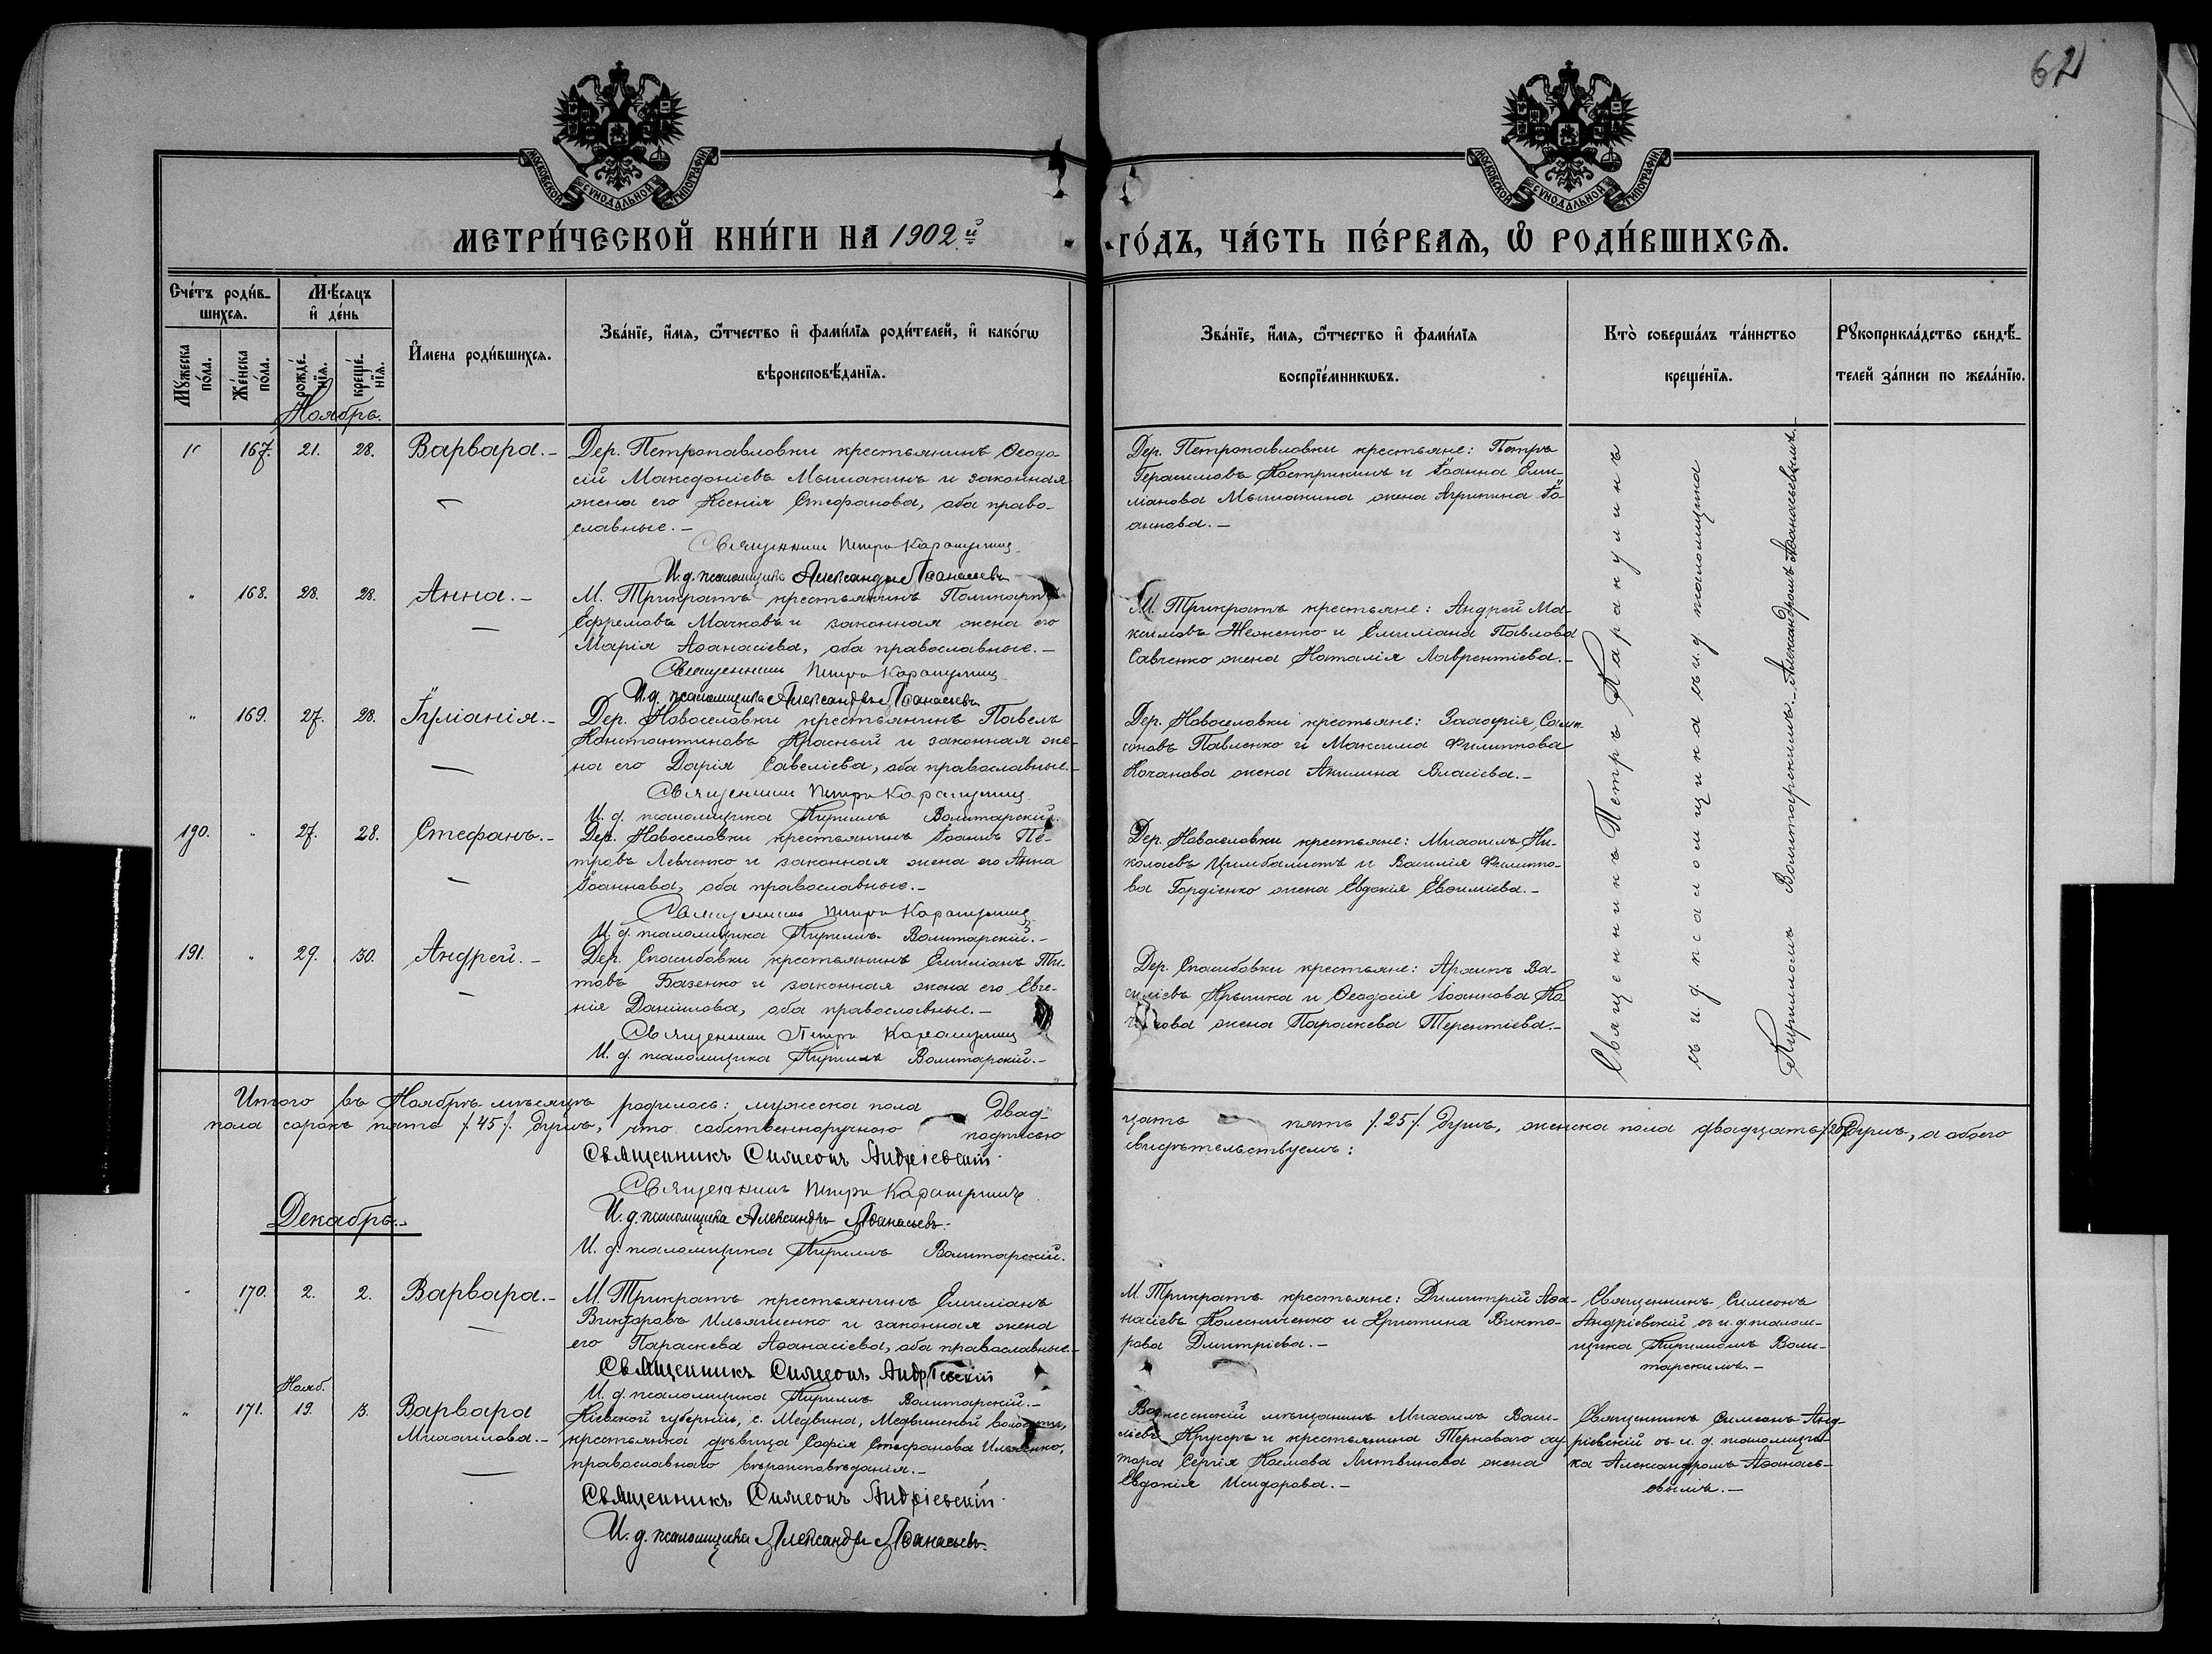 62
МОСКОВСКОЙ СѴНОДАЛЬНОЙ ТИПОГРАФІИ
МОСКОВСКОЙ СѴНОДАЛЬНОЙ ТИПОГРАФІИ
МЕТРИ́ЧЕСКОЙ КНИ́ГИ НА 1902й
ГО́ДЪ, ЧА́СТЬ ПЕ́РВАѦ, Ѡ РОДИ́ВШИХСѦ.
Сче́тъ роди́в-
шихсѧ.
Мѣ́сѧцъ
и҆ де́нь
Мꙋ́жеска
по́ла.
Же́нска
по́ла.
рожде́-
нїѧ.
креще́-
нїѧ.
И҆мена роди́вшихсѧ.
Зва́нїе, и҆́мѧ, ѻ҆́тчество и҆ фами́лїѧ роди́телей, и҆ како́гѡ
вѣроисповѣ́данїѧ.
Зва́нїе, и҆́мѧ, ѻ҆́тчество и҆ фами́лїѧ
воспрїе́мникѡвъ.
Кто̀ соверша́лъ та́инство
креще́нїѧ.
Рꙋкоприкла́дство свидѣ́-
телей за́писи по жела́нїю.
Ноябрь.
" 167. 21. 28. Варвара.-
Дер. Петропавловки крестьянинъ Ѳеодо
сій Македоніевъ Мышакинъ и законная
жена его Ксенія Стефанова, оба право-
славные.-
Священникъ Петръ Каракулинъ
И. д. псаломщика Александръ Аѳанасьевъ
Дер. Петропавловки крестьяне: Петръ
Герасимовъ Кострикинъ и Іоанна Еми-
ліанова Мышакина жена Агрипина Іо-
аннова.-
" 168. 28. 28. Анна.-
М. Трикратъ крестьянинъ Поликарпъ
Ефремовъ Мачковъ и законная жена его
Марія Аѳанасіева, оба православные.-
Священникъ Петръ Каракулинъ
И. д. псаломщика Александръ Аѳанасьевъ
М. Трикратъ крестьяне: Андрей Ма-
ксимовъ и Емиліана Павлова
Савченко жена Наталія Лаврентіева.-
" 169. 27. 28. Іуліанія.-
Дер. Новоселовки крестьянинъ Павелъ
Константиновъ Красный и законная же-
на его Дарія Савеліева, оба православные.-
Священникъ Петръ Каракулинъ
И. д. псаломщика Кириллъ Волитарскій.
Дер. Новоселовки крестьяне: Самп-
соновъ Павленко и Максима Филиппова
Кочанова жена Акилина Власіева.-
190. " 27. 28. Стефанъ.-
Дер. Новоселовки крестьянинъ Іоаннъ Пе-
тровъ Левченко и законная жена его Анна
Іоаннова, оба православные.-
Священникъ Петръ Каракулинъ
И. д. псаломщика Кириллъ Волитарскій.-
Дер. Новоселовки крестьяне: Михаилъ Ни-
колаевъ Цимбалистъ и Василія Филиппо-
ва Гордіенко жена Евдокія Евѳиміева.-
191. " 29. 30. Андрей.-
Дер. Спасибовки крестьянинъ Емиліанъ Ти-
товъ Базенко и законная жена его Евге-
нія Даніилова, оба православные.-
Священникъ Петръ Каракулинъ
И. д. псаломщика Кириллъ Волитарскій.-
Дер. Спасибовки крестьяне: Архипъ Ва-
силіевъ Крышка и Ѳеодосія Іоаннова
жена Параскева Терентіева.-
Священникъ Петръ Каракулинъ
съ и. д. псаломщика и и. д. псаломщика
Кирилломъ Волитарскимъ - Александромъ Аѳанасьевымъ.-
Итого въ Ноябрѣ мѣсяцѣ родилось: мужеска пола двад-
цать пять /25/ душъ, женска пола двадцать /20/ душъ, а обоего
пола сорокъ пять /45/ душъ, что собственноручною подписью
свидѣтельствуемъ:
Священникъ Симеонъ Андріевскій.
Священникъ Петръ Каракулинъ.
И. д. псаломщика Александръ Аѳанасьевъ.
И. д. псаломщика Кириллъ Волитарскій.
Декабрь.-
" 170. 2. 2. Варвара.-
М. Трикратъ крестьянинъ Емиліанъ
Викторовъ Ильяшенко и законная жена
его Параскева Аѳанасіева, оба православные.-
Священникъ Симеонъ Андріевскій
И. д. псаломщика Кириллъ Волитарскій.-
М. Трикратъ крестьяне: Димитрій Аѳа-
насіевъ Колесниченко и Христина Викто-
рова Дмитріева.-
Священникъ Симеонъ
Андріевскій съ и. д. псалом-
щика Кирилломъ Воли-
тарскимъ.-
" 171. Нояб. 19. 3. Варвара
Михаилова.-
Кіевской губерніи, с. Медвина, Медвинской волости,
крестьянка дѣвица Софія Стефанова Ильченко,
православнаго вѣроисповѣданія.-
Священникъ Симеонъ Андріевскій.
И. д. псаломщика Александръ Аѳанасьевъ.
Вознесенскій мѣщанинъ Михаилъ Васи-
ліевъ и крестьянина Терноваго ху-
тора Сергія Космова Литвинова жена
Евдокія Исидорова.-
Священникъ Симеонъ Анд-
ріевскій съ и. д. псаломщи-
ка Александромъ Аѳанась-
евымъ.-